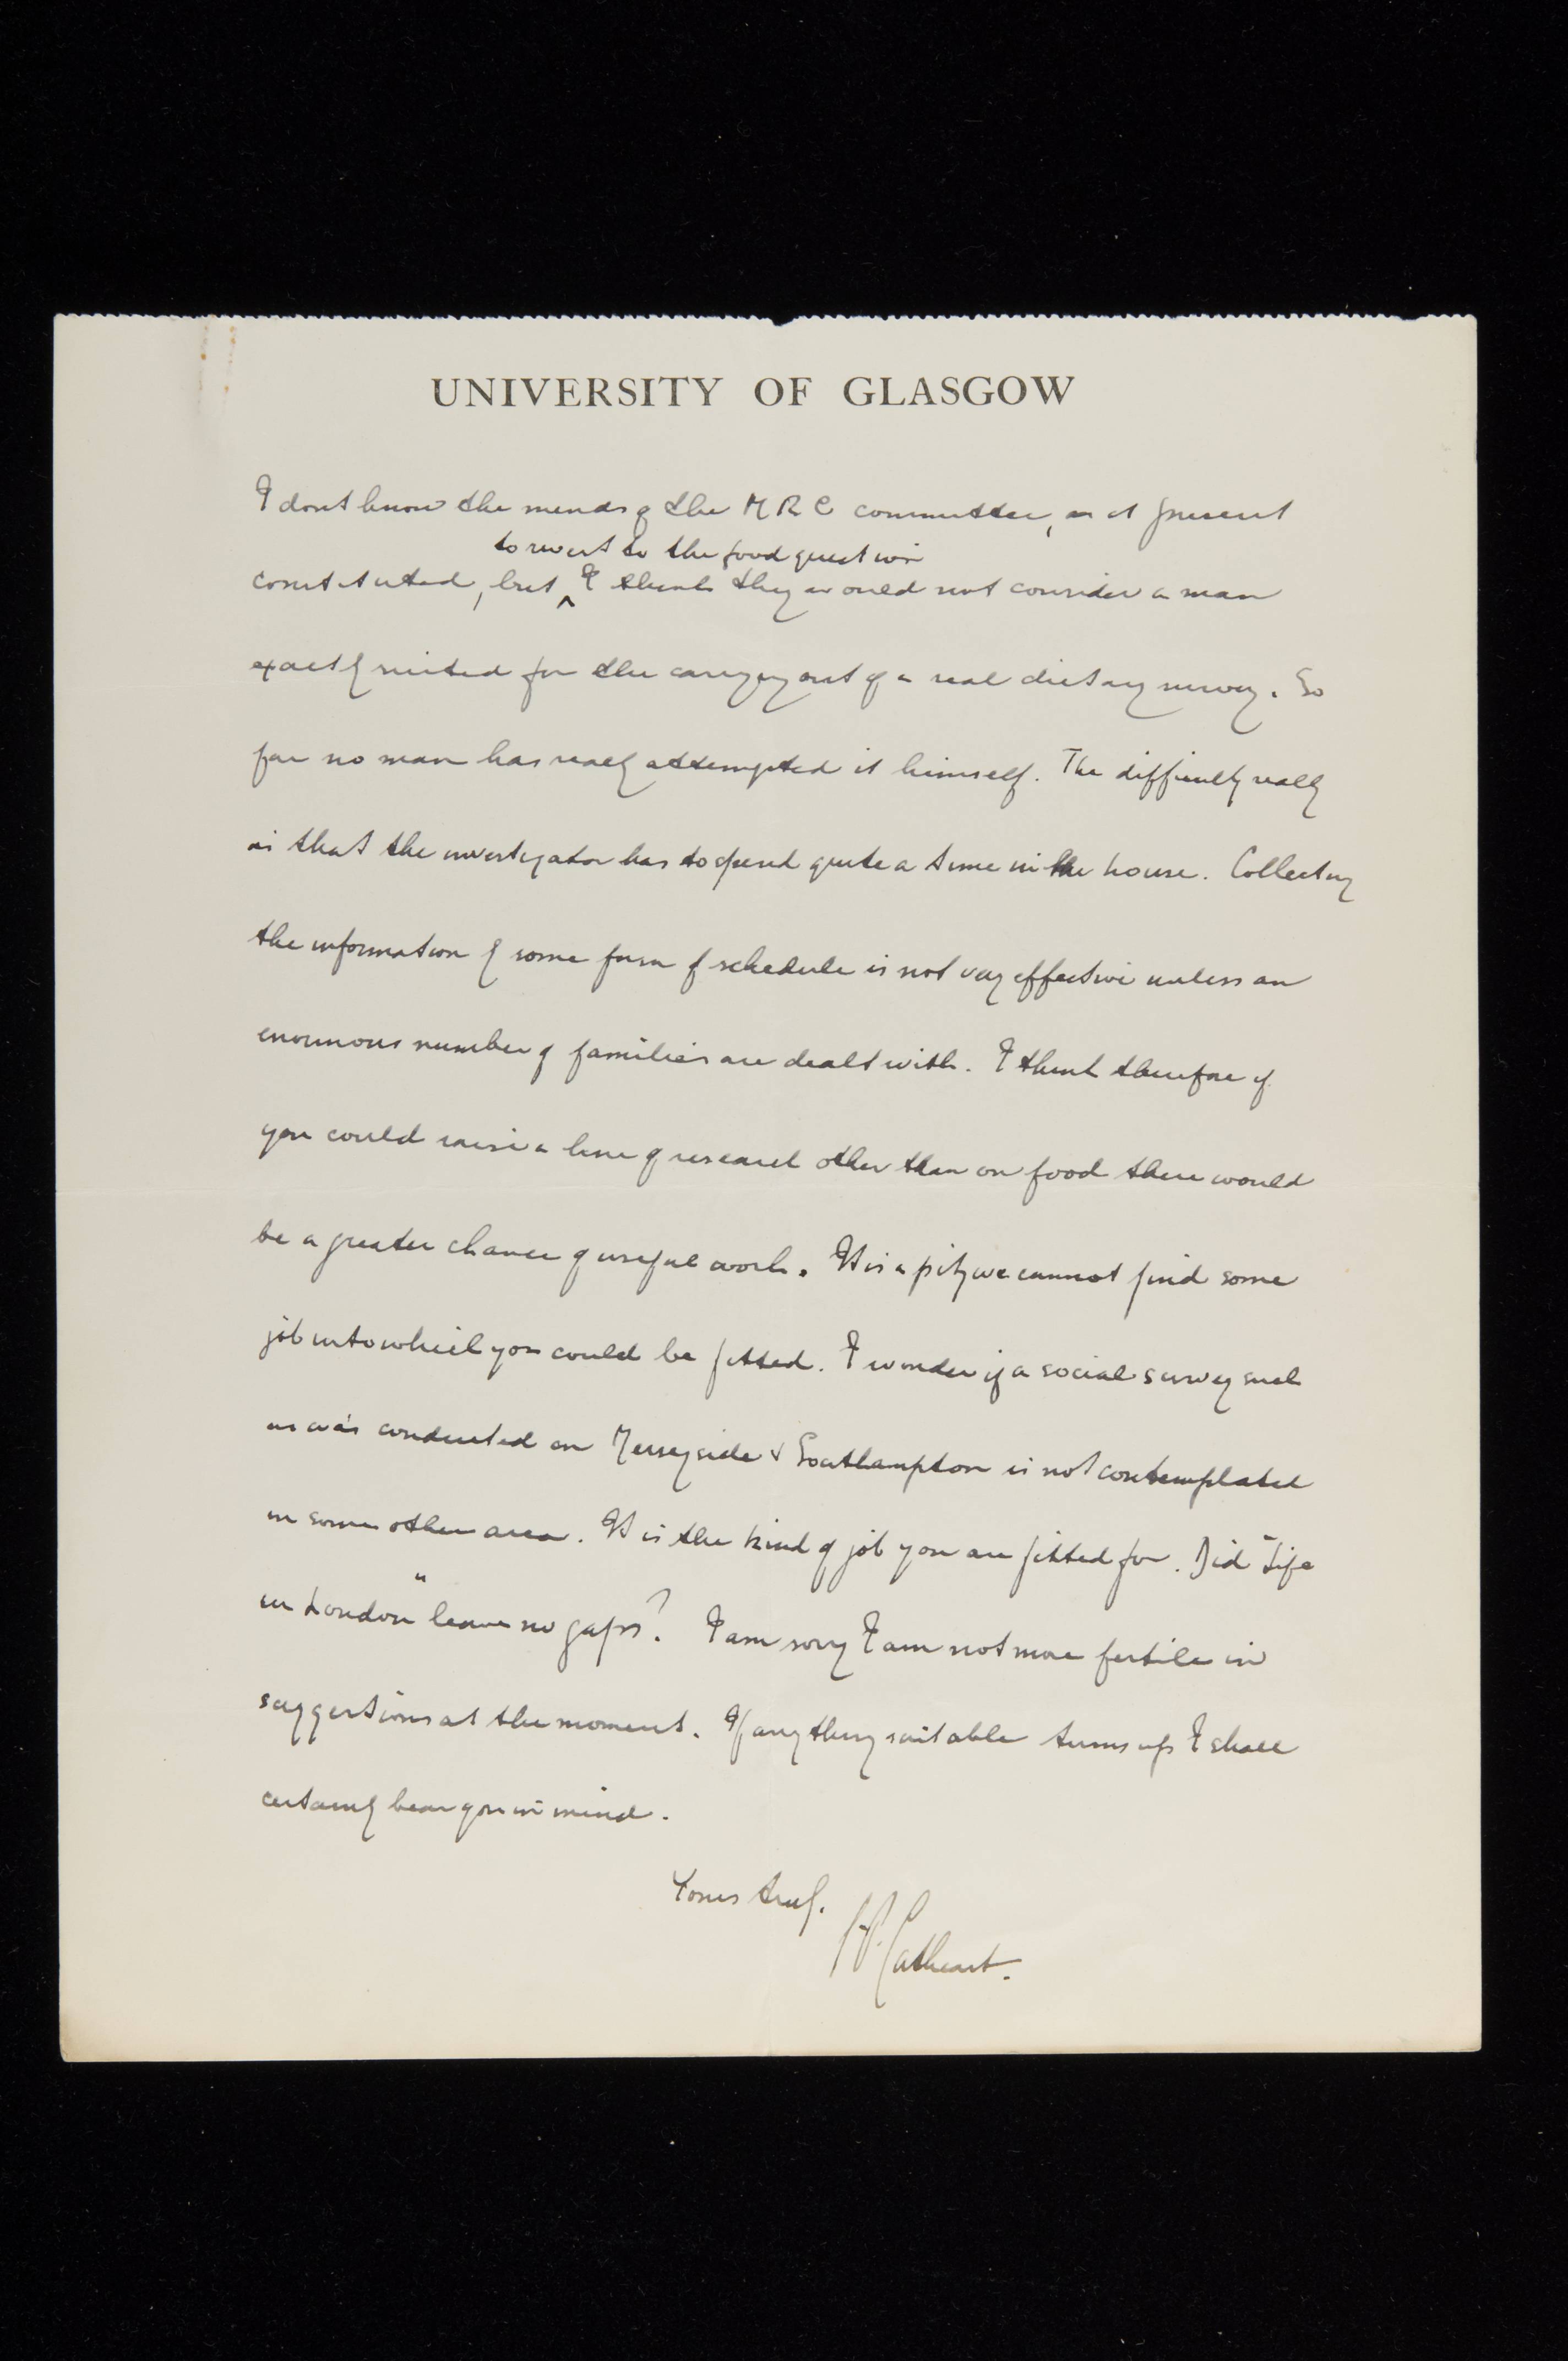 UNIVERSITY OF GLASGOW
I dont know the minds of the MRC committee, as at present
to revert to the food question
constituted, but ^ I think they would not consider a man
exactly suited for the carrying out of a real dietary survey. So
far no man has really attempted it himself. The difficulty really
is that the investigator has to spend quite a time in the house. Collecting
the information by some form of schedule is not very effective unless an
enormous number of families are dealt with. I think therefore if
you could raise a line of research other than on food there would
be a greater chance of useful work. It is a pity we cannot find some
job into which you could be fitted. I wonder if a social survey such
as was conducted on Merseyside & Southampton is not contemplated
in some other area. It is the kind of job you are fitted for. Did "Life
in London" leave no gaps? I am sorry I am not more fertile in
suggestions at the moment. If anything suitable turns up I shall
certainly bear you in mind.
Yours truly.
EP. Cathcart.